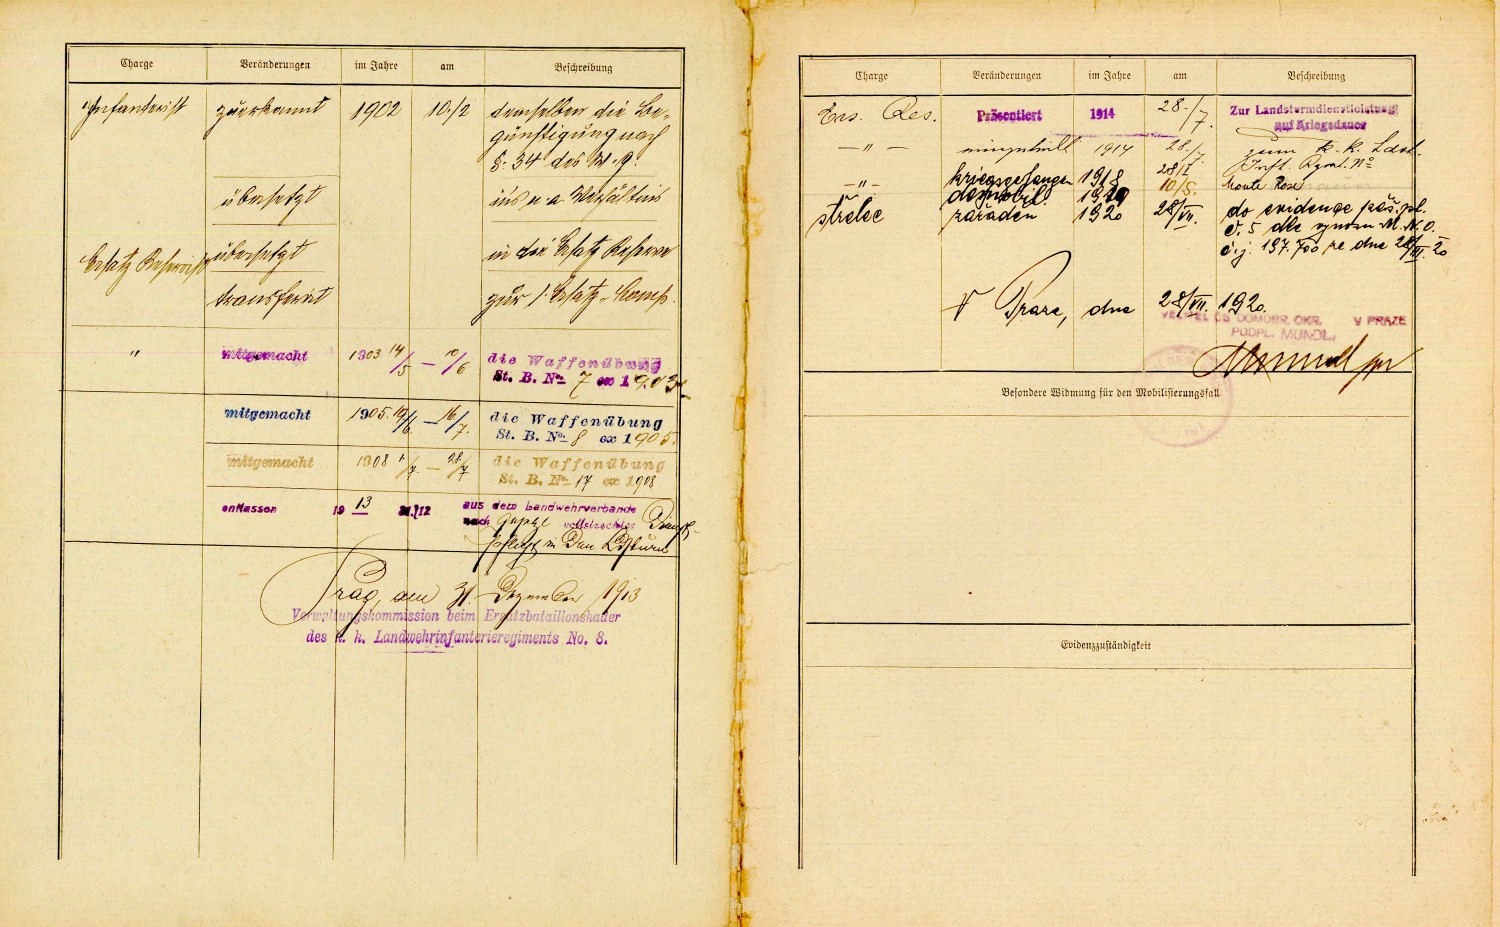 Charge Veränderungen im Jahre am Beschreibung
Infanterist zuerkannt 1902 10./2 demselben die Be-
günstigung nach
§. 34 des W. g.
übersetzt ins n. a. Verhältnis
Ersatz Reservist übersetzt in die Ersatz Reserve
transferirt zur 1. Ersatz-Comp.
" mitgemacht 1903 14/5 — 10/6 die Waffenübung
St. B. No. 7 ex 1903
mitgemacht 1905. 19/6. — 16/7. die Waffenübung
St. B. No. 8 ex 1905.
mitgemacht 1908 1/7. — 28/7 die Waffenübung
St. B. No. 17 ex 1908
entlassen 1913 31./12 aus dem Landwehrverbande
nach vollstreckter Dienst-
pflicht in den Ldsturm
Prag, am 31. Dezember 1913
Verwaltungskommission beim Ersatzbataillonskader
des k. k. Landwehrinfanterieregiments No. 8.
Charge Veränderungen im Jahre am Beschreibung
Ers. Res. Präsentiert 1914 28./7. Zur Landsturmdienstleistung
auf Kriegsdauer
— " — 1914 28./7. zum k. k. Ldst.
Inft. Rgmt. No
— " — kriegsgefangen 1918 28/I Monte Rose
domobil. 10/5.
střelec zařaděn 1920 28/VII. do evidence pěš. pl.
č. 5 dle výnosu M. N. O.
čj. 197.700 ze dne 28/III. 20
V Praze, dne 28/VII. 1920.
VELITEL ČS DOMOBR. OKR. V PRAZE
PODPL. MUNDL.
Besondere Widmung für den Mobilisierungsfall
Evidenzzuständigkeit